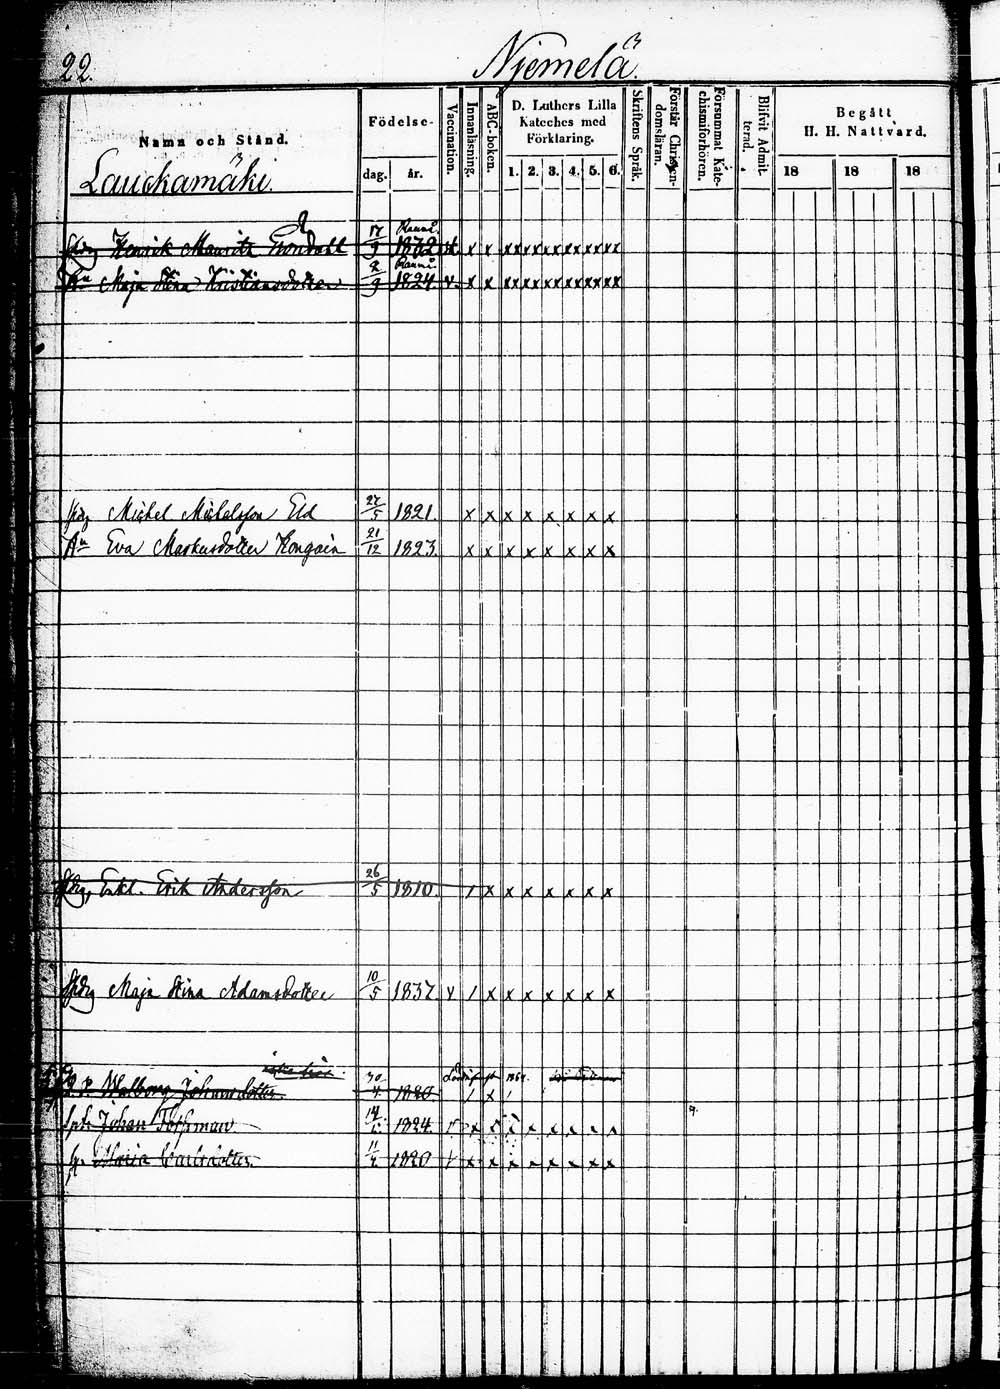 22.
Njemelä 3.
Namn och Stånd.
Födelse-
dag.
år.
Vaccination.
Innanläsning.
ABC-boken.
D. Luthers Lilla
Kateches med
Förklaring.
1. 2. 3. 4. 5. 6.
Skriftens Språk.
Förstår Christen-
domsläran.
Försummat Kate-
chismiforhören.
Blifvit Admit-
terad.
Begått
H. H. Nattvard.
18 18 18
Lauckamäki.
Henrik Maurits 17/9 1832 x x x x x x x x x x x x x x
Maja Stina Kristiansdotter 2/9 1824 v. x x x x x x x x x x x x x x
Michel Michelsson Eld 27/5 1821. x x x x x x x x
Hu Eva Markusdotter Kongain 21/12 1823. x x x x x x x x
Enkl. Erik Andersson 26/5 1810. / x x x x x x x
Maja Stina Adamsdotter 10/5 1837 v / x x x x x x x
Walborg Johansdotter 30/4 1820 / x /
Johan 1824. v x x x x x x x x
Maria Carlsdotter. 11/4 1820 v x x x x x x x x